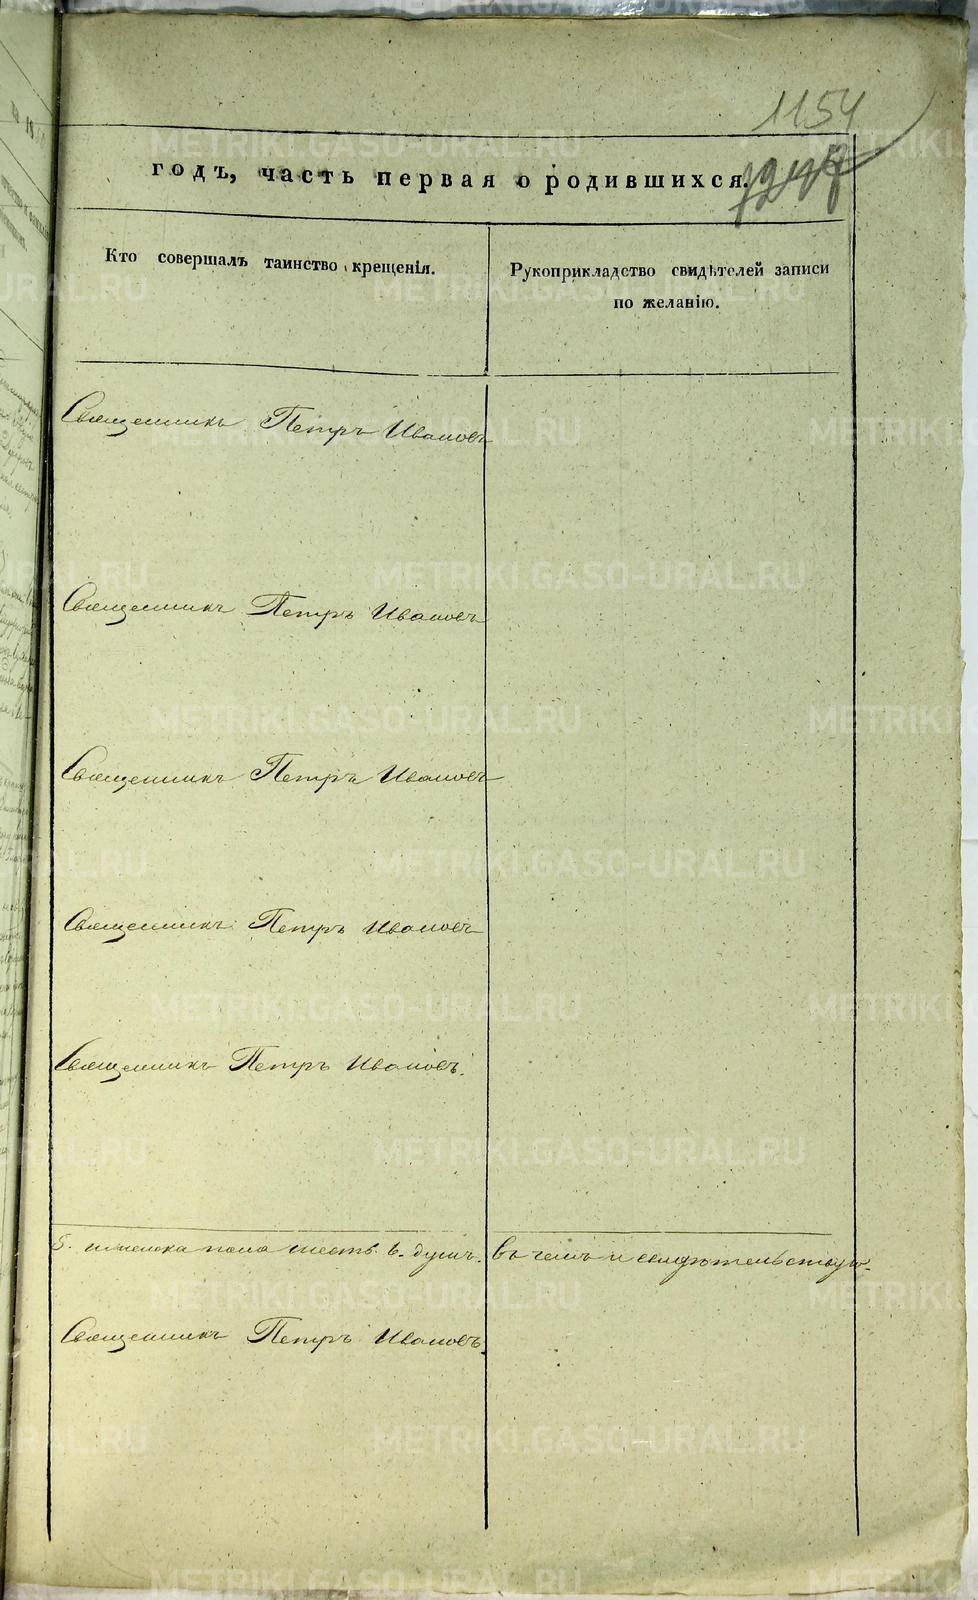 1154
годъ, часть первая о родившихся.
Кто совершалъ таинство крещенія.
Рукоприкладство свидѣтелей записи
по желанію.
Священникъ Петръ Ивановъ
Священникъ Петръ Ивановъ
Священникъ Петръ Ивановъ
Священникъ Петръ Ивановъ
Священникъ Петръ Ивановъ.
пола шесть. 6. душъ. въ чемъ и свидѣтельствую.
Священникъ Петръ Ивановъ.
METRIKI.GASO-URAL.RU